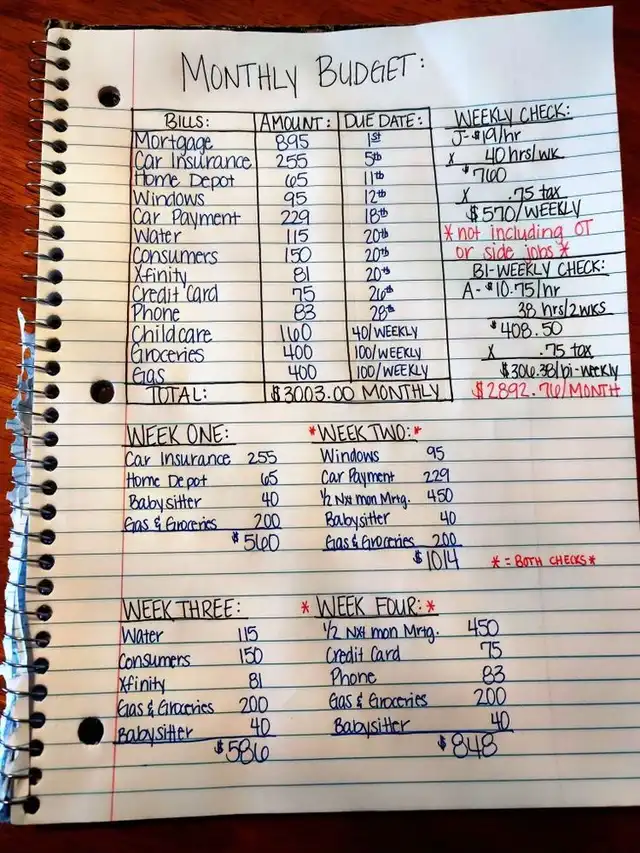 MONTHLY BUDGET:
BILLS: AMOUNT: DUE DATE:
Mortgage 895 1st
Car Insurance 255 5th
Home Depot 65 11th
Windows 95 12th
Car Payment 229 18th
Water 115 20th
Consumers 150 20th
Xfinity 81 20th
Credit Card 75 26th
Phone 83 28th
Childcare 160 40/WEEKLY
Groceries 400 100/WEEKLY
Gas 400 100/WEEKLY
TOTAL: $3003.00 MONTHLY
WEEKLY CHECK:
J- $19/hr
x 40hrs/wk
$760
x .75 tax
$570/WEEKLY
*not including OT
or side jobs*
BI-WEEKLY CHECK:
A- $10.75/hr
38 hrs/2wks
$408.50
x .75 tax
$306.38/bi-weekly
$2892.76/MONTH
WEEK ONE:
Car Insurance 255
Home Depot 65
Babysitter 40
Gas & Groceries 200
$560
*WEEK TWO:*
Windows 95
Car Payment 229
1/2 Nxt mon Mrtg. 450
Babysitter 40
Gas & Groceries 200
$1014
*=BOTH CHECKS*
WEEK THREE:
Water 115
Consumers 150
Xfinity 81
Gas & Groceries 200
Babysitter 40
$586
* WEEK FOUR:*
1/2 Nxt mon Mrtg. 450
Credit Card 75
Phone 83
Gas & Groceries 200
Babysitter 40
$848